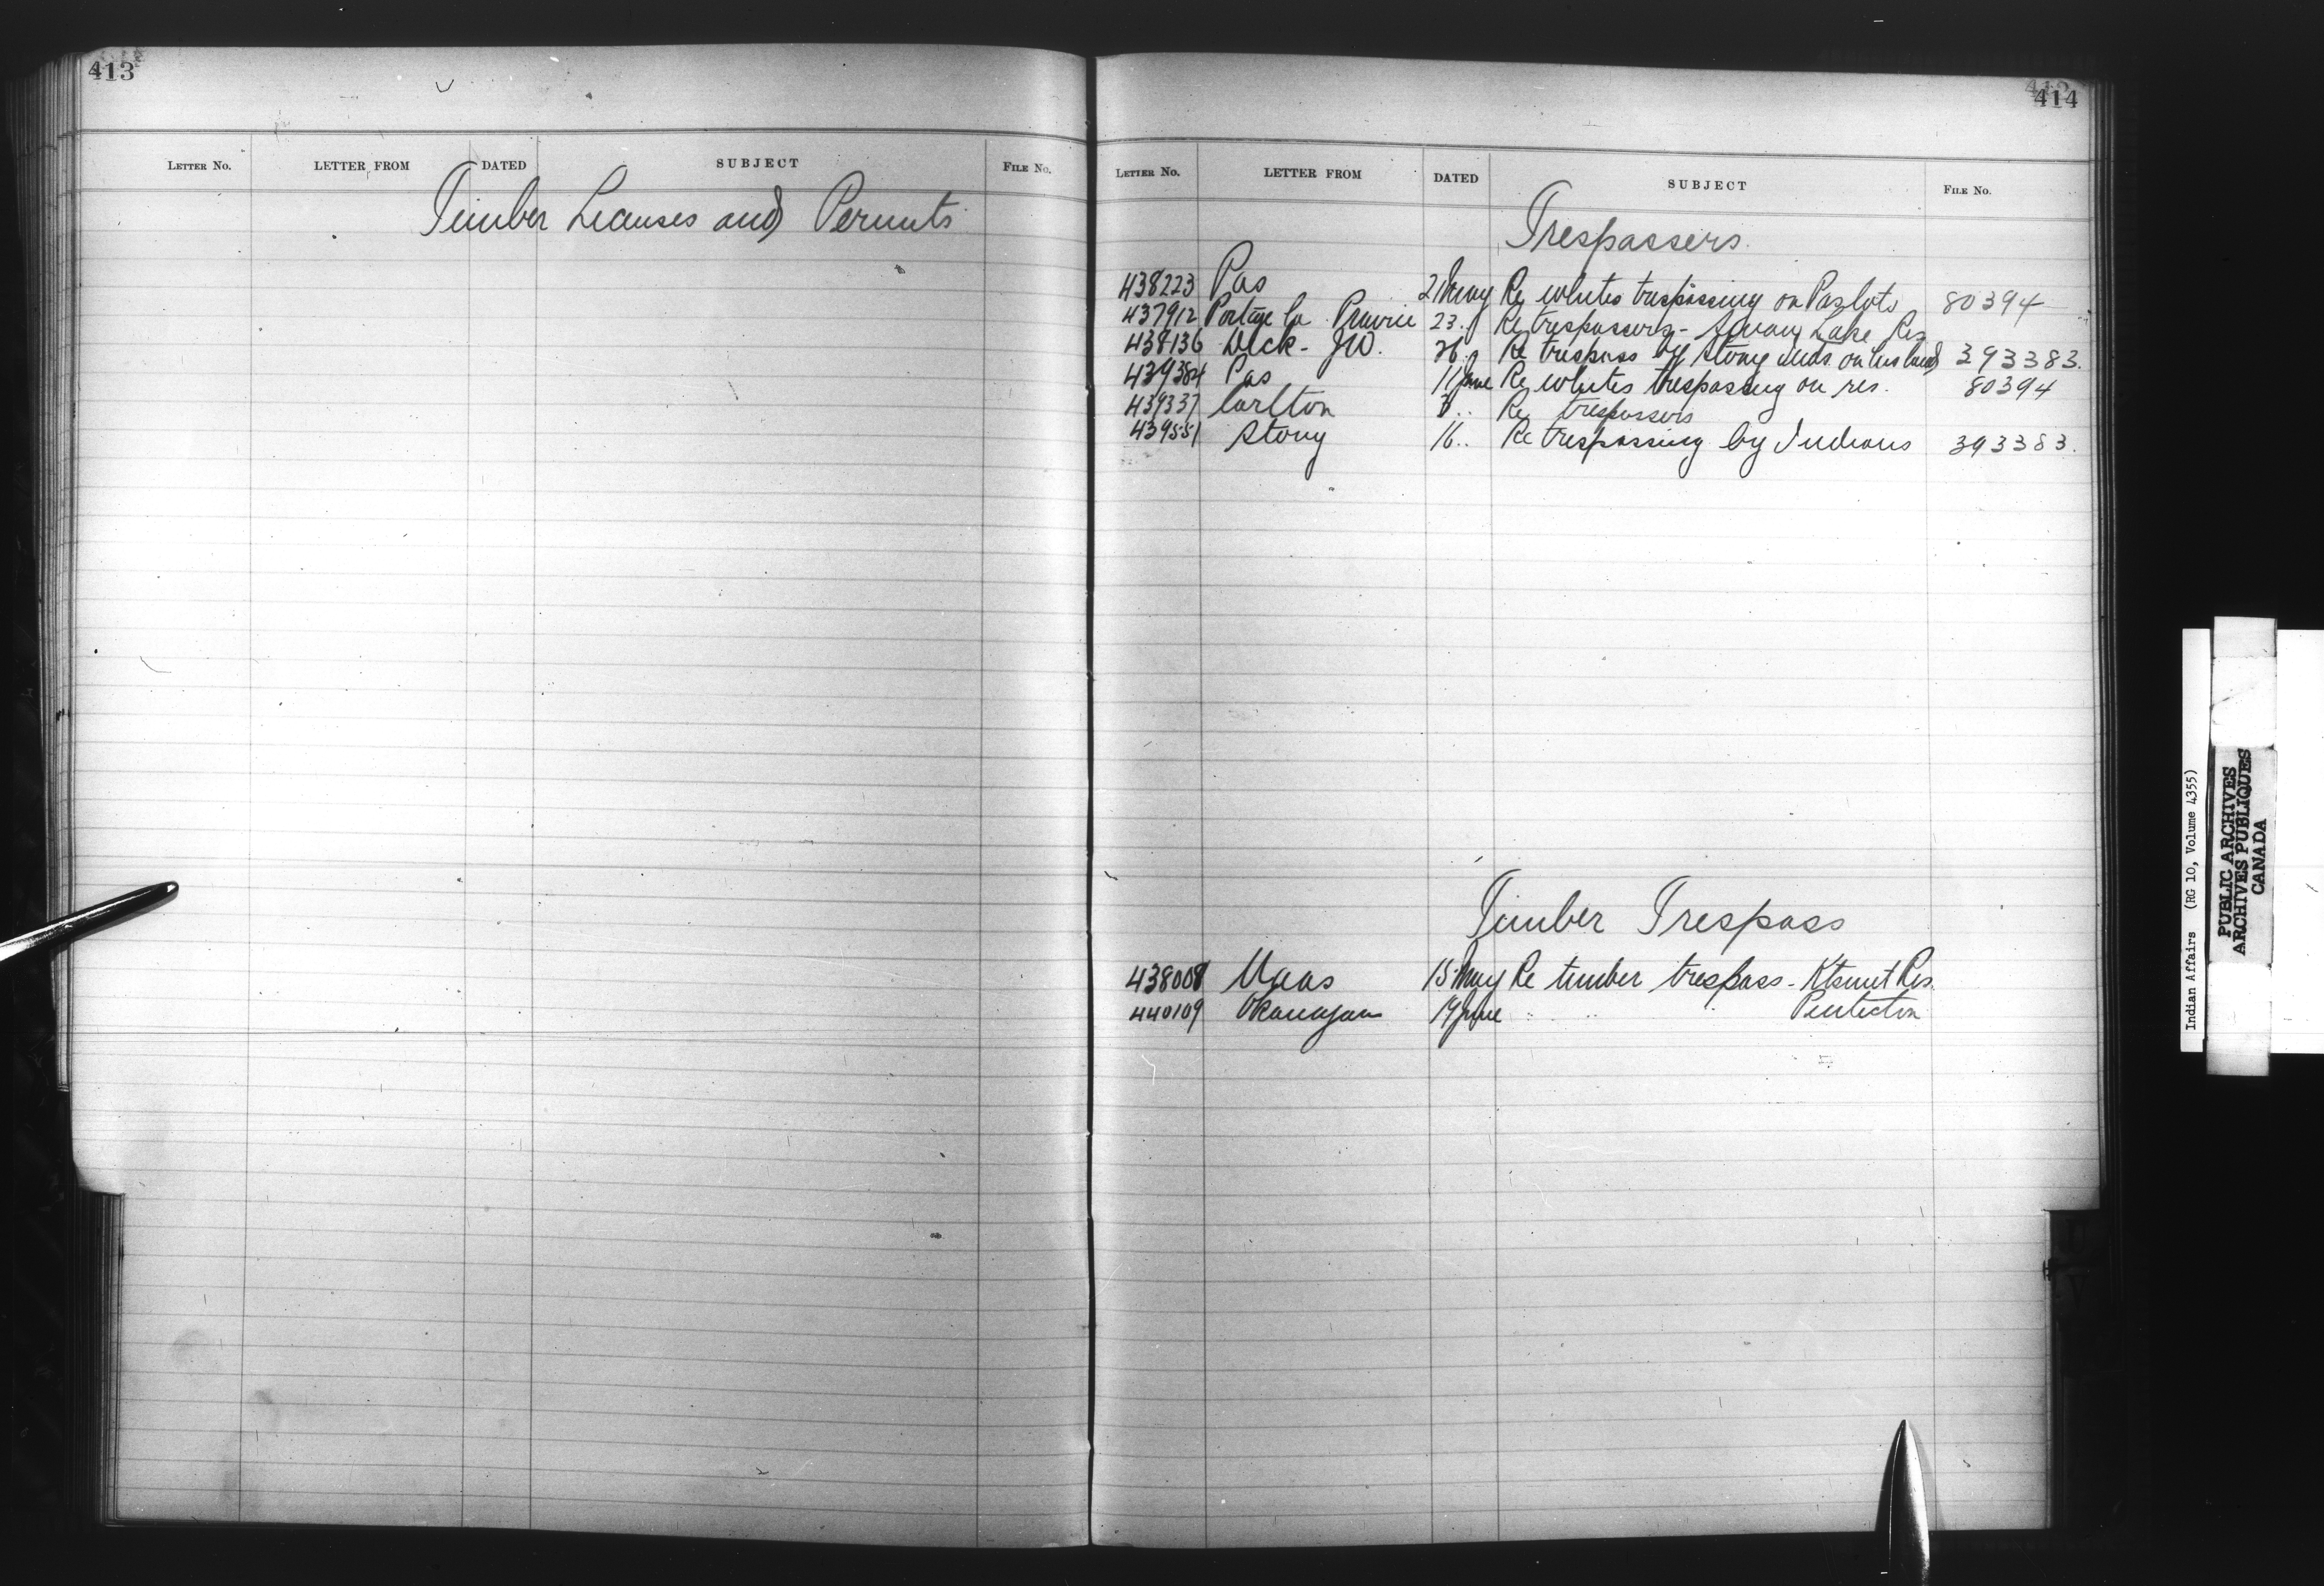 413
LETTER NO. LETTER FROM DATED SUBJECT FILE NO.
Timber Licenses and Permits
414
LETTER NO. LETTER FROM DATED SUBJECT FILE NO.
Trespassers.
438223 Pas 21 May Re whites trespassing on Pas lots 80394
437912 Portage la Prairie 23. " Re trespassers - Lake Res
438136 Dick - J.W. 26. " Re trespass by Stony inds. on his land 393383.
439384 Pas 11 June Re whites trespassing on res. 80394
439337 Carlton 8 .. Re trespassers
439551 Stony 16 .. Re trespassing by Indians 393383.
Timber Trespass
438008 Naas 15 May Re timber trespass - Res.
440109 Okanagan 19 June " " " Penticton
Indian Affairs (RG 10, Volume 4355)
PUBLIC ARCHIVES
ARCHIVES PUBLIQUES
CANADA